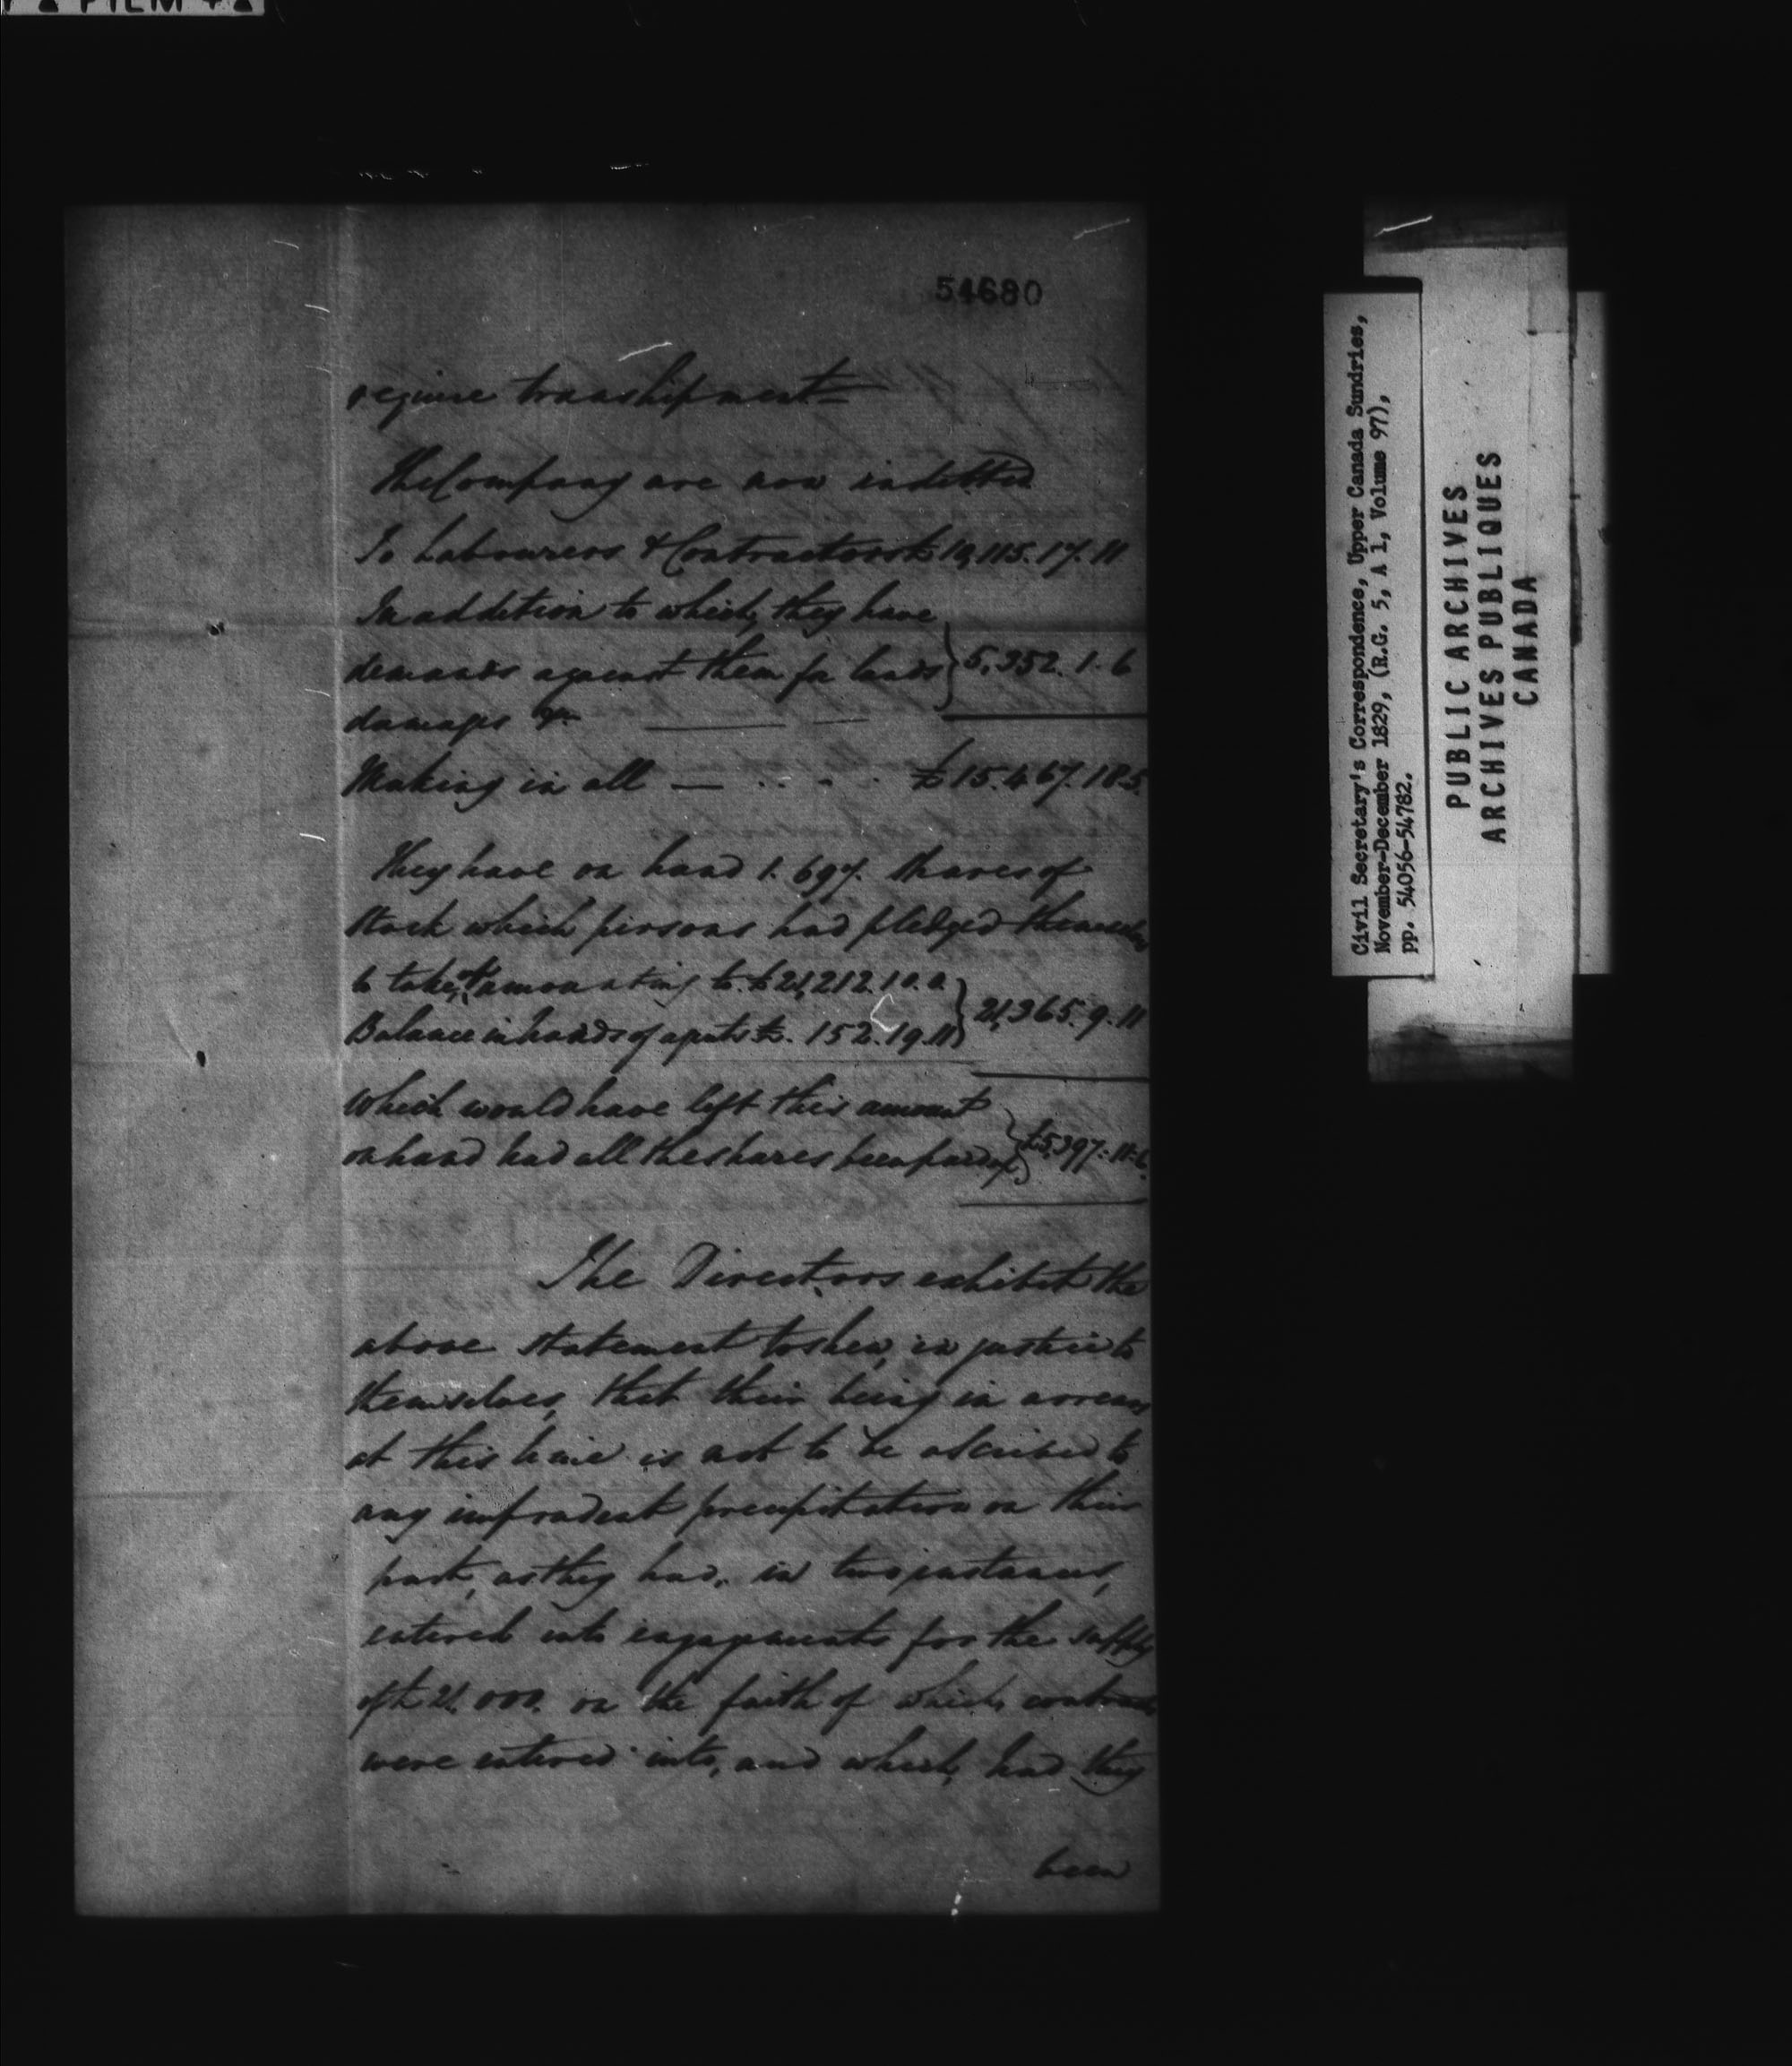 54680
require transhipment
The Company are now indebted
To Labourers & Contractors £10,115.17.11
In addition to which, they have
demands against them for lands } 5,352.1.6
damages &c
Making in all — £15.467.18.5
They have on hand 1.697. shares of
Stock which persons had pledged themselves
to take, amounting to £21,212.10.0
Balance in hands of agents £. 152.19.11 } 21,365.9.11
Which would have left this amount
on hand had all the shares been paid up } £5,397.11.6
The Directors exhibit the
above statement to shew, in justice to
themselves, that their being in arrears
at this time is not to be ascribed to
any imprudent precipitation on their
part, as they had, in two instances,
entered into engagements for the supply
of £21,000. on the faith of which, contracts
were entered into, and which, had they
been
Civil Secretary's Correspondence, Upper Canada Sundries,
November-December 1829, (R.G. 5, A 1, Volume 97),
pp. 54056-54782.
PUBLIC ARCHIVES
ARCHIVES PUBLIQUES
CANADA